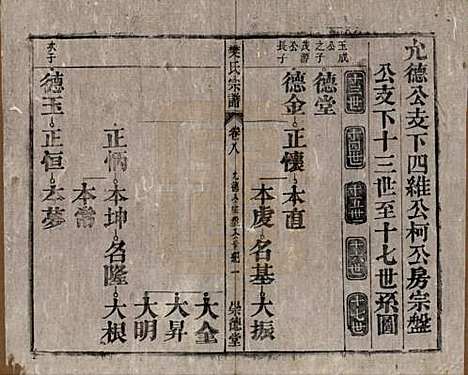 允德公支下四維公柯公房宗盤
公支下十三世至十七世系圖
十三世
十四世
十五世
十六世
十七世
玉成
公茂
之子
長子
德堂
德金 正懷 本直
本虔 名基 大振
樊氏宗譜 卷八 一 崇德堂
大全
大昇
大明
正炳 本坤 名隆 大根
本常
次子
德玉 正恒 本夢